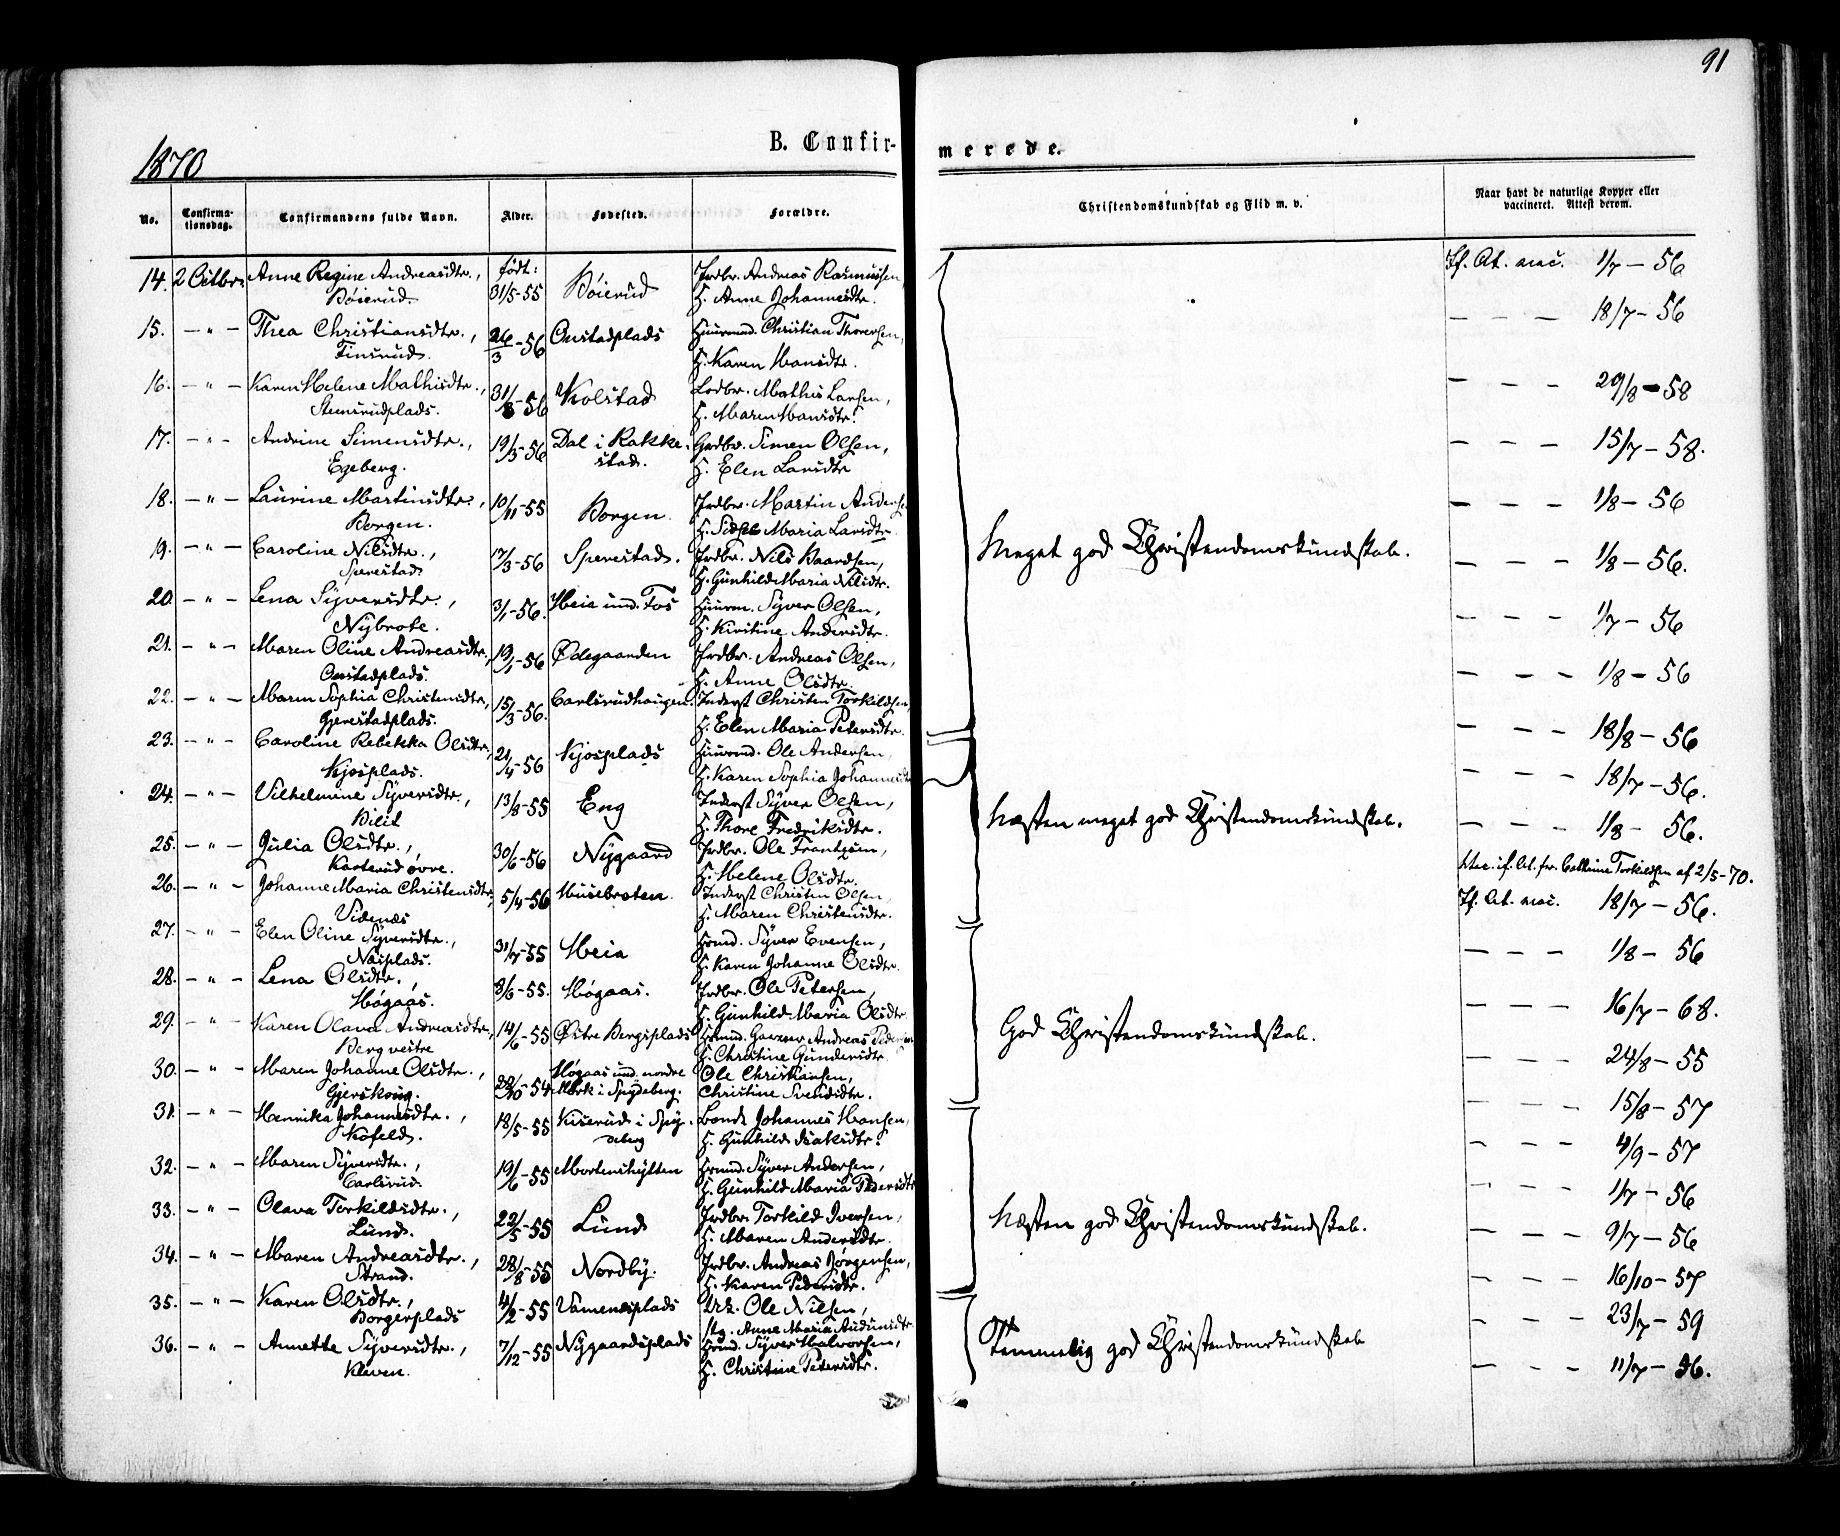 91
1870
B. Confir-
merede.
No.
Confirma-
tionsdag.
Confirmandens fulde Navn.
Alder.
Fødested.
Forældre.
Christendomskundskab og Flid m. v.
Naar havt de naturlige Kopper eller
vaccineret. Attest derom.
14. 2 Octbr. Anne Regine Andreasdtr., født: Grdbr. Andreas Rasmussen
Bøierud. 31/5-55 Bøierud H. Anne Johannesdtr.
If. At. vac. 1/7 - 56
15. - " - Thea Christiansdtr., 26/3-56 Onstadplads Huusmd. Christian Thoresen,
Finsrud. H. Karen Hansdtr.
- - - 18/7 - 56
16. - " - Karen Helene Mathisdtr., 31/8-56 Kolstad Lodbr. Mathis Larsen,
Stensrudplads. H. Maren Hansdtr.
- - - 29/8 - 58
17. - " - Andrine Simensdtr., 19/3-56 Dal i Rakke- Grdbr. Simen Olsen,
Egeberg. stad. H. Elen Larsdtr
- - - 15/7 - 58.
18. - " - Laurine Martinsdtr., 10/11-55 Borgen. Grdbr. Martin Anders
Borgen. H. Sidsel Maria Larsdtr.
- - - 1/8 - 56
19. - " - Caroline Nilsdtr., 17/3-56 Sperestad. Grdbr. Nils Baardsen,
Sperestad H. Gunhild Maria Nilsdtr.
- - - 1/8 - 56.
20. - " - Lena Syversdtr., 3/1-56. Heia und. Fos Huusm. Syver Olsen,
Nybrote. H. Kirstine Andersdtr.
- - - 1/7 - 56
21. - " - Maren Oline Andreasdtr., 19/1-56 Ødegaarden Grdbr. Andreas Olsen,
Onstadplads. H. Anne Olsdtr.
- - - 1/8 - 56
22. - " - Maren Sophia Christensdtr, 15/3-56. Carlsrudhaugen. Inderst Christen Torkildsen,
Gjerestadplads. H. Elen Maria Petersdtr.
- - - 18/8 - 56
Meget god Christendomskundskab.
23. - " - Caroline Rebekka Olsdtr, 21/4-56 Kjosplads Huusmd. Ole Andersen,
Kjosplads. H. Karen Sophia Johannesdtr
- - - 18/7 - 56.
24. - " - Vilhelmine Syversdtr., 13/8-55 Eng Inderst Syver Olsen,
Bilit H. Thore Fredriksdtr.
- - - 1/8 - 56.
25. - " - Julia Olsdtr., 30/6-56 Nygaard Grdbr. Ole Frantzsen,
Karterud øvre. H. Helene Olsdtr.
Vac. if. At. fr. Cathrine Torkildsen af 2/5-70.
26. - " - Johanne Maria Christensdtr, 5/4-56 Husebroten. Inderst Christen Olsen,
Videnæs H. Maren Christensdtr.
If. At. vac. 18/7 - 56.
Næsten meget god Christendomskundskab.
27. - " - Elen Oline Syversdtr., 31/7-55 Heia Hsmd. Syver Evensen,
Næsplads. H. Karen Johanne Olsdtr.
- - - 1/8 - 56
28. - " - Lena Olsdtr., 8/6-55. Høgaas. Grdbr. Ole Petersen,
Høgaas. H. Gunhild Maria Olsdtr.
- - - 16/7 - 68.
29. - " - Karen Olava Andreasdtr, 14/6-55 Østre Bergsplads Hsmd. Andreas Pedersen
Berg vestre H. Christine Gundersdtr.
- - - 24/8 - 55
30. - " - Maren Johanne Olsdtr., 22/10-54 Høgaas und. nordre Ole Christiansen,
Gjerskoug. Mørk i Spydeberg. Christine Svendsdtr.
- - - 15/8 - 57
God Christendomskundskab.
31. - " - Henrika Johannesdtr., 18/5-55 Kiserud i Spy- Bonde Johannes Hansen,
Kofeld. deberg H. Gunhild Isaksdtr.
- - - 4/9 - 57
32. - " - Maren Syversdtr., 19/6-55 Mortenshytten Hsmd. Syver Andersen,
Carlsrud. H. Gunhild Maria Pedersdtr
- - - 1/7 - 56
33. - " - Olava Torkildsdtr., 22/5-55 Lund Grdbr. Torkild Iversen,
Lund. H. Maren Andersdtr.
- - - 9/7 - 56
34. - " - Maren Andreasdtr., 28/8-55 Nordby. Grdbr. Andreas Jørgensen,
Strand. H. Karen Pedersdtr.
- - - 16/10 - 57
Næsten god Christendomskundskab.
35. - " - Karen Olsdtr., 4/2-55 Vamenesplads Urk. Ole Nilsen,
Borgerplads Anne Maria Audunsdtr
- - - 23/7 - 59
36. - " - Annette Syversdtr., 7/12-55 Nygaardsplads Hsmd. Syver Halvorsen,
Kleven. H. Christine Petersdtr.
- - - 11/7 - 56.
Temmelig god Christendomskundskab